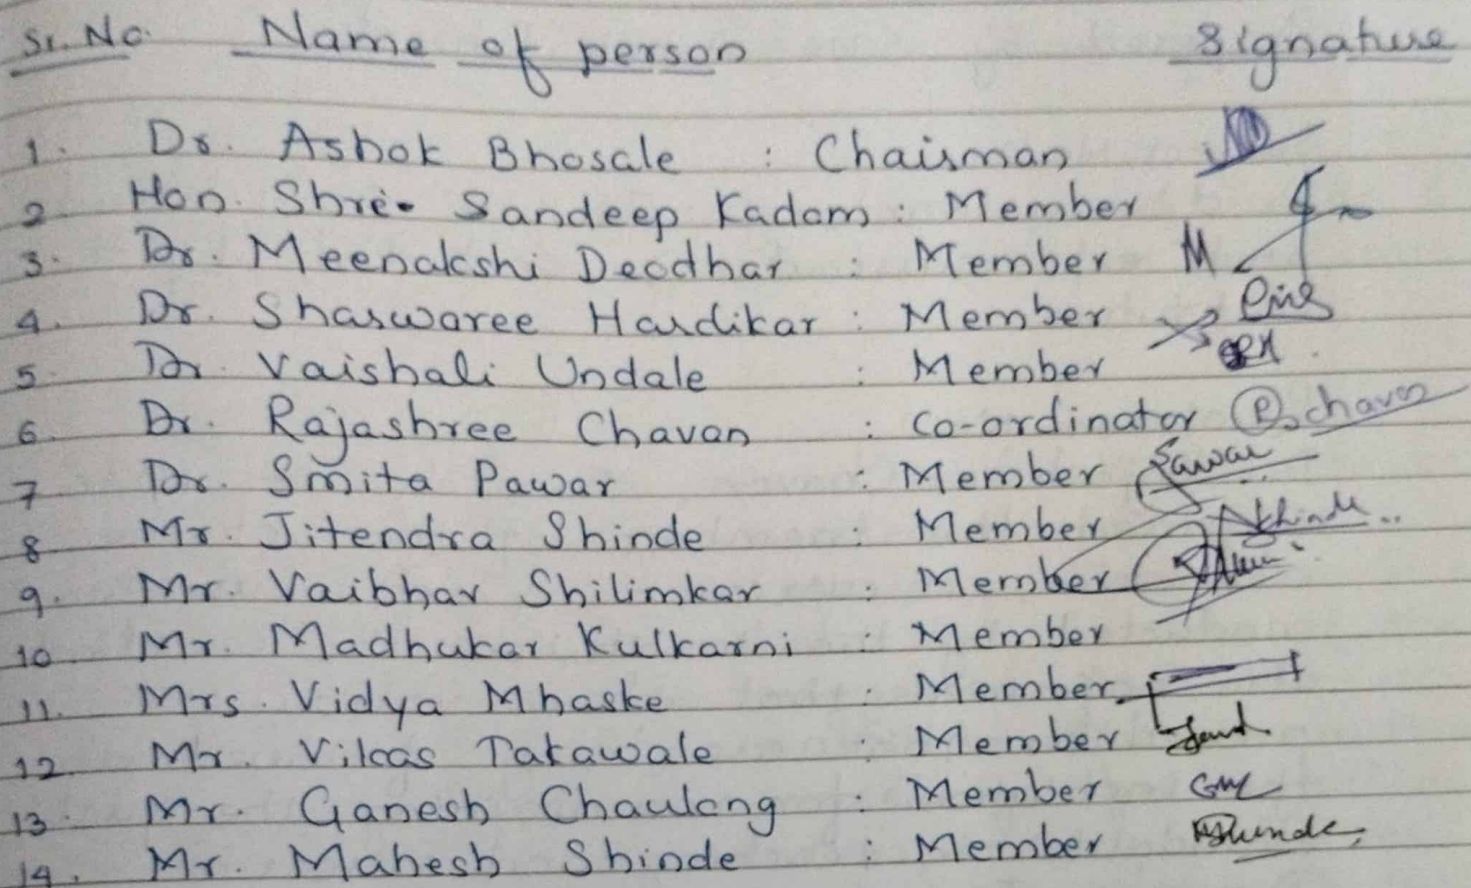 Sr. No. Name of person Signature
1. Dr. Ashok Bhosale : Chairman
2 Hon. Shri. Sandeep Kadam : Member
3. Dr. Meenakshi Deodhar : Member M
4. Dr. Shaswaree Hardikar : Member
5. Dr. Vaishali Undale : Member
6. Dr. Rajashree Chavan : Co-ordinator R. chavan
7 Dr. Smita Pawar : Member Pawar
8 Mr. Jitendra Shinde : Member Shinde
9. Mr. Vaibhav Shilimkar : Member
10 Mr. Madhukar Kulkarni : Member
11. Mrs. Vidya Mhaske : Member
12 Mr. Vikas Takawale : Member
13. Mr. Ganesh Chaulang : Member
14. Mr. Mahesh Shinde : Member Shinde